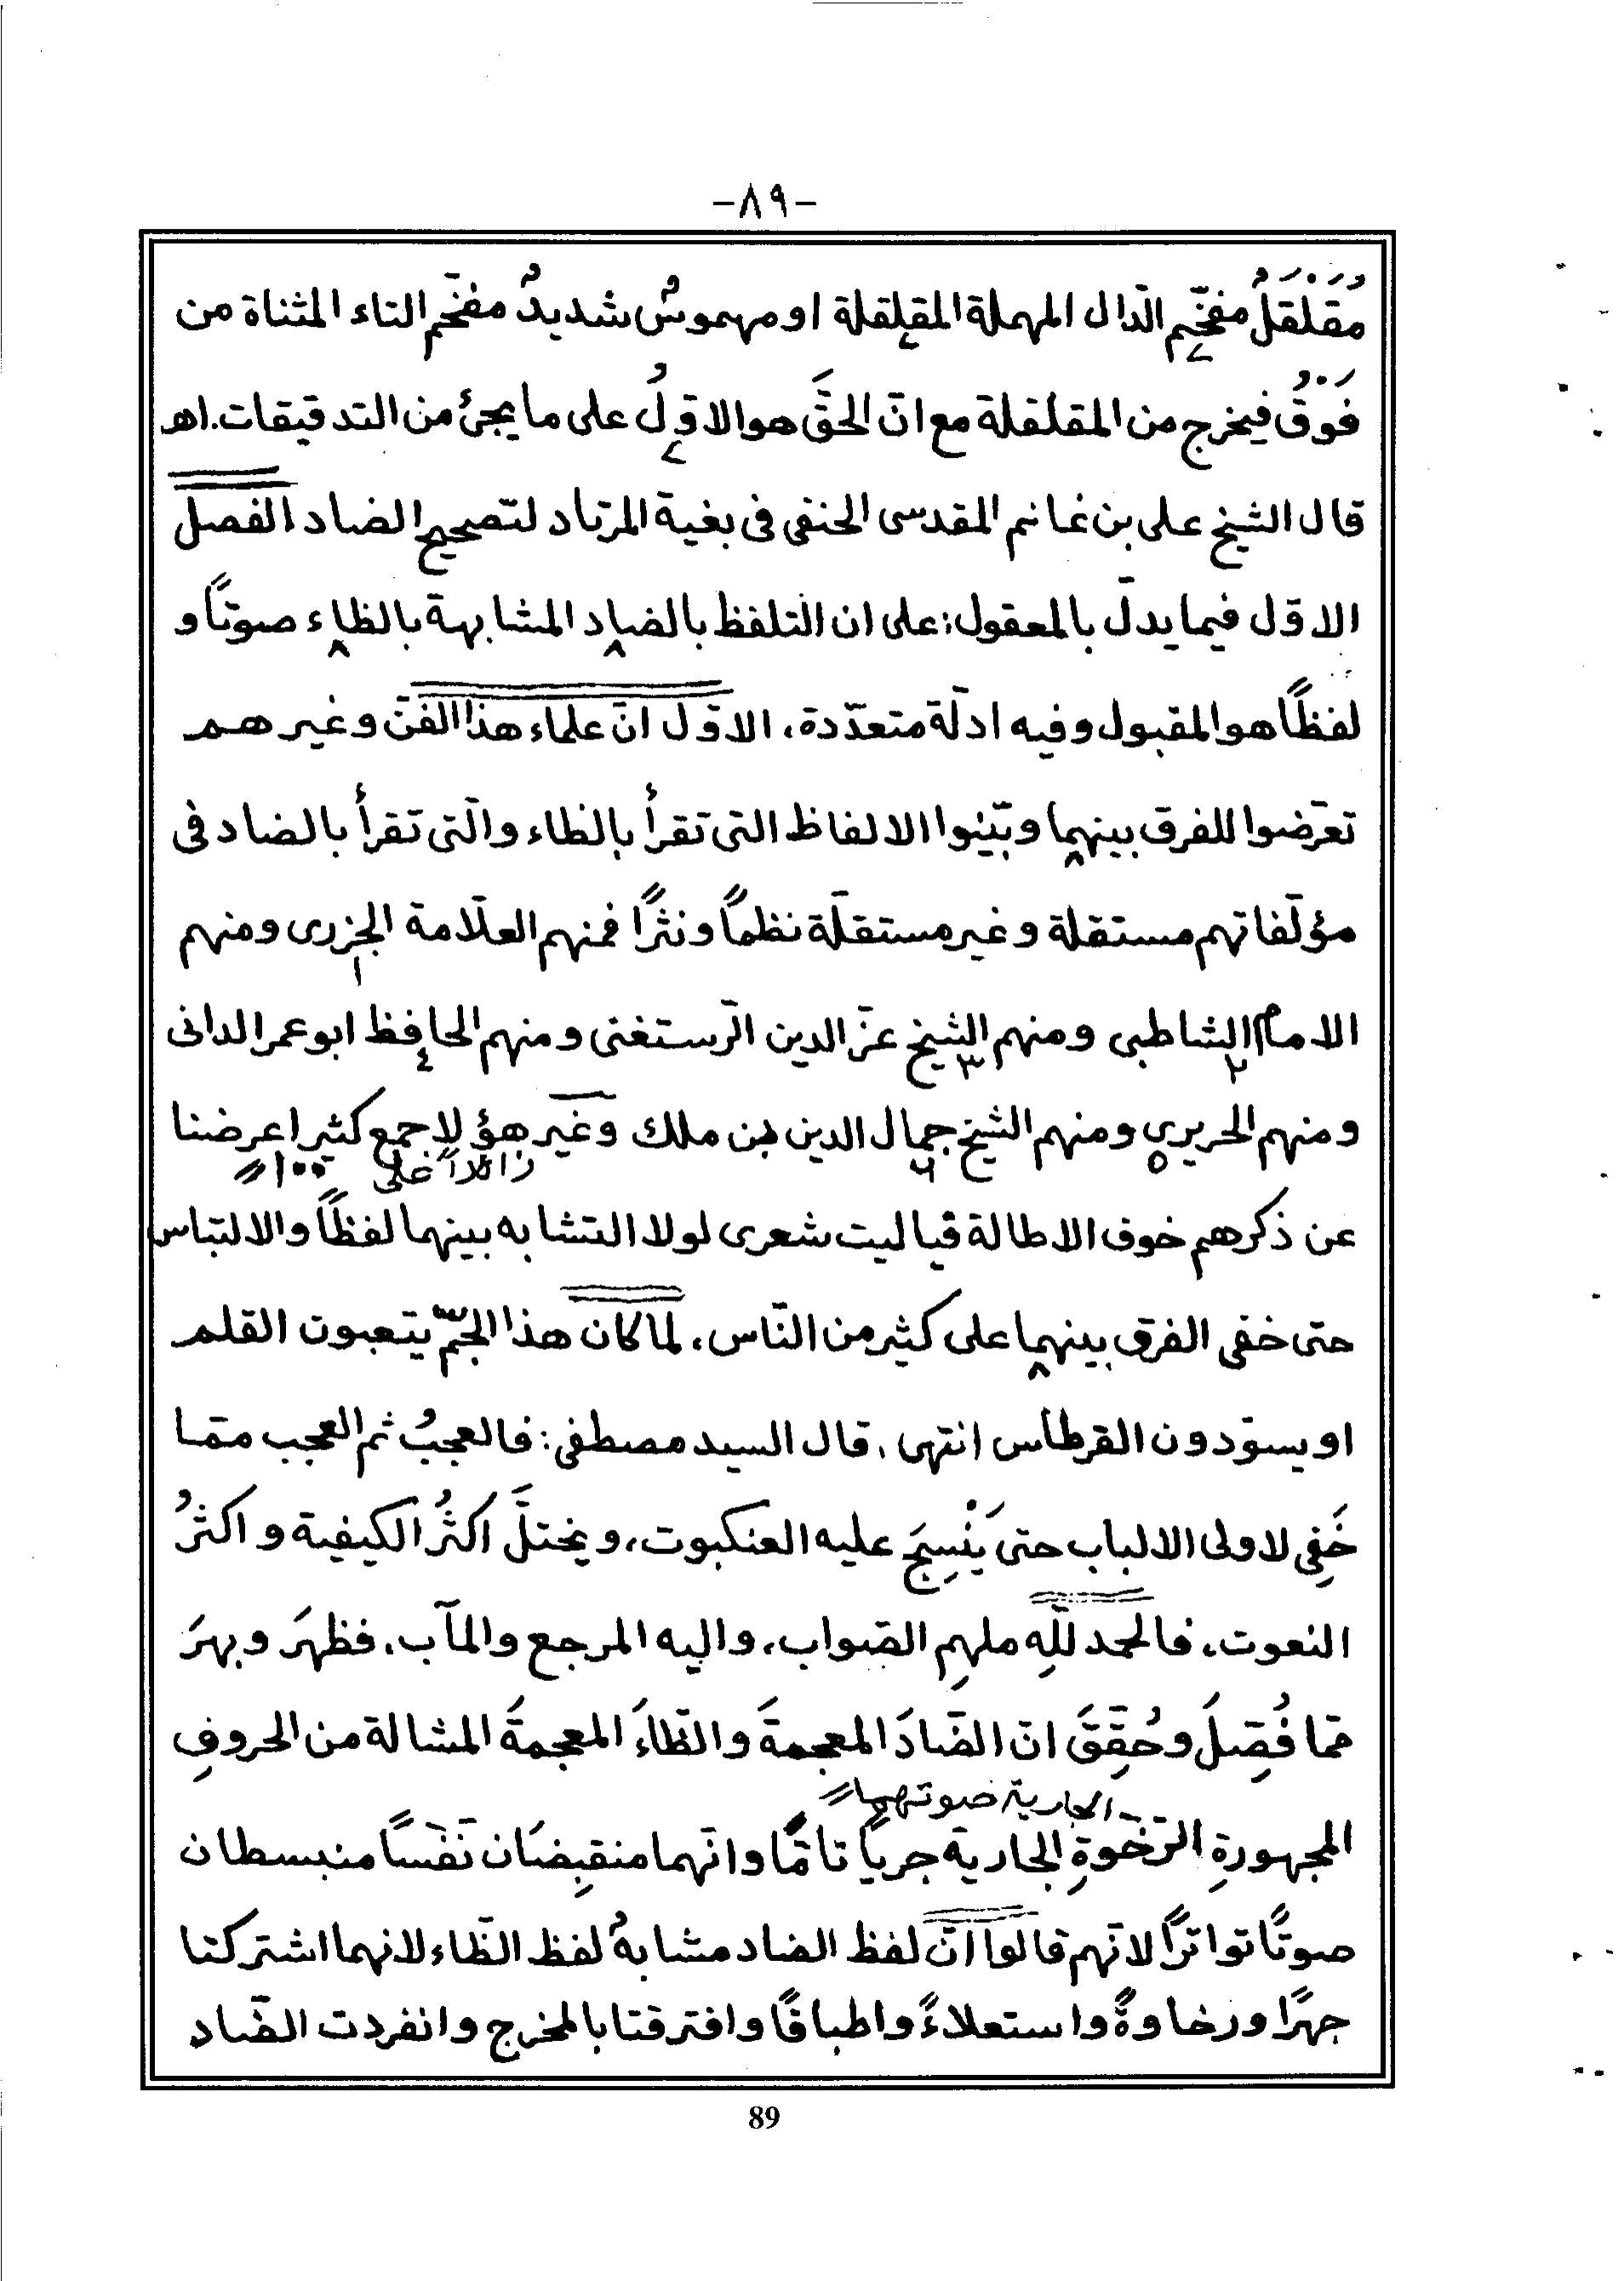 -٨٩-
مُقَلْقَلٌ مفخّم الدّال المهملة المقلقلة او مهموسٌ شديدٌ مفخّم التاء المثناة من
فَوْقُ فيخرج من المقلقلة مع انّ الحقَّ هو الاوّلُ على ما يجئ من التدقيقات. اهـ
قال الشيخ على بن غانم المقدسى الحنفى فى بغية المرتاد لتصحيح الضاد الفصل
الاوّل فيما يدلّ بالمعقول: على ان التلفظ بالضاد المشابهة بالظاء صوتاً و
لفظاً هو المقبول وفيه ادلّة متعدّدة، الاوّل انّ علماء هذا الفنّ وغيرهم
تعرّضوا للفرق بينهما وبيّنوا الالفاظ التى تقرأُ بالظاء والّتى تقرأُ بالضاد فى
مؤلّفاتهم مستقلة وغير مستقلّة نظماً ونثراً فمنهم العلّامة الجزرى ١ ومنهم
الامام الشاطبى ٢ ومنهم الشيخ ٣ عزّ الدين الرّستغنى ومنهم الحافظ ٤ ابو عمر الدانى
ومنهم الحريري ٥ ومنهم الشيخ جمال ٦ الدين بن ملك وغير هؤلاء جمع كثير اعرضنا
زائداً على ١٠٠ //
عن ذكرهم خوف الاطالة فياليت شعرى لولا التشابه بينهما لفظاً والالتباس
حتى خفى الفرق بينهما على كثير من النّاس، لما كان هذا الجمّ يتعبون القلم
او يسوّدون القرطاس انتهى، قال السيد مصطفى: فالعجبُ ثم العجب ممّا
خَفِى لاولى الالباب حتى يَنْسِجَ عليه العنكبوت، ويختلَّ اكثرُ الكيفية و اكثرُ
النعوت، فالحمد للّٰهِ ملهِمِ الصّواب، واليه المرجع والمآب، فظهَرَ وبهرَ
ممّا فُصِّلَ وحُقِّقَ انّ الضّادَ المعجمةَ والظّاءَ المعجمةَ المشالة من الحروفِ
الجارية صوتهما //
المجهورةِ الرَّخوةِ الجارية جرياً تامًّا وانّهما منقبِضَان نَفَسًا منبسطان
صوتًا تواترًا لانّهم قالوا انّ لفظ الضاد مشابهٌ لفظ الظّاء لانهما اشتركتا
جهرًا ورخاوةً واستعلاءً واطباقًا وافترقتا بالمخرج وانفردت الضّاد
89